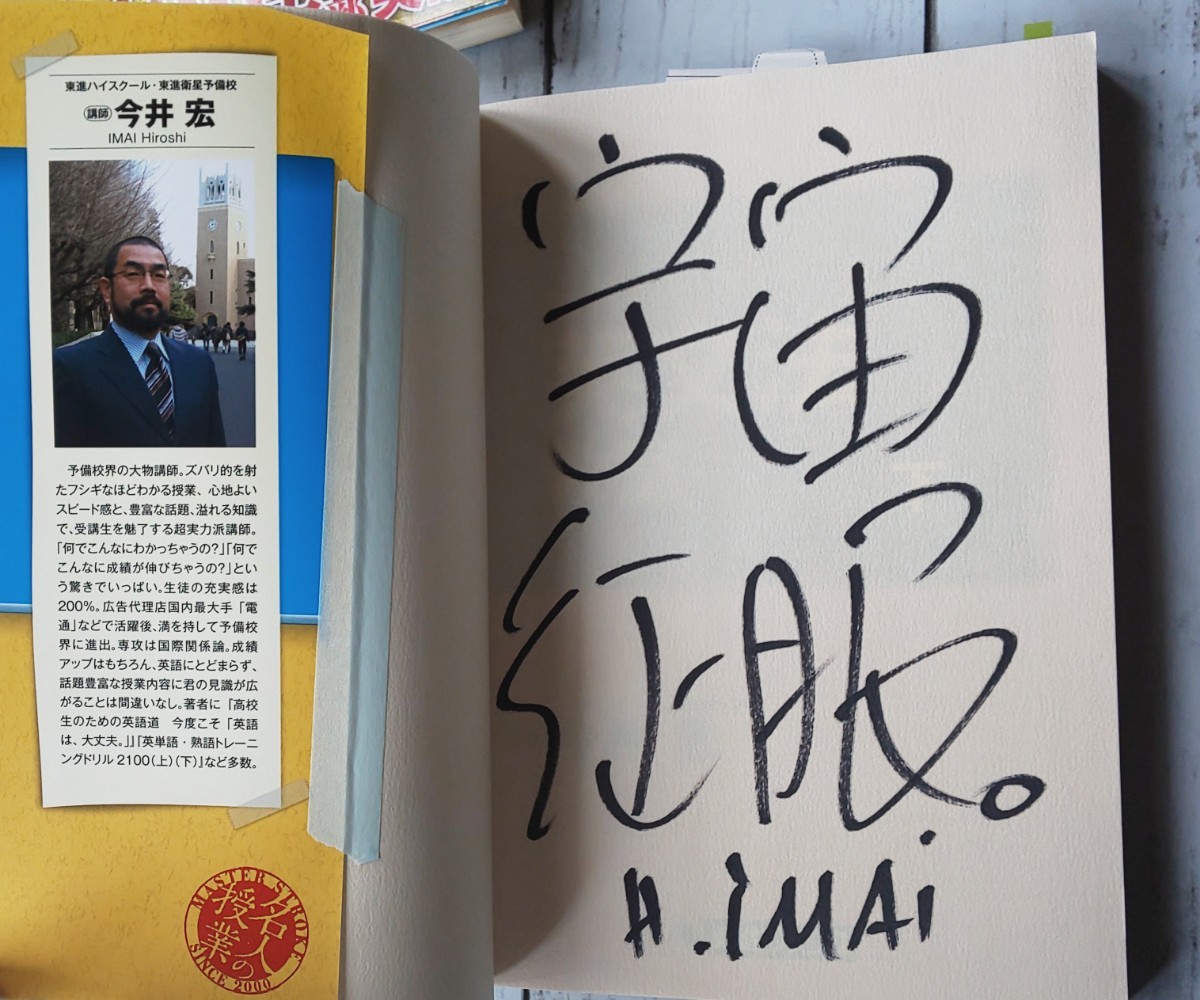 東進ハイスクール・東進衛星予備校
講師 今井 宏
IMAI Hiroshi
予備校界の大物講師。ズバリ的を射
たフシギなほどわかる授業、心地よい
スピード感と、豊富な話題、溢れる知識
で、受講生を魅了する超実力派講師。
「何でこんなにわかっちゃうの?」「何で
こんなに成績が伸びちゃうの?」とい
う驚きでいっぱい。生徒の充実感は
200%。広告代理店国内最大手「電
通」などで活躍後、満を持して予備校
界に進出。専攻は国際関係論。成績
アップはもちろん、英語にとどまらず、
話題豊富な授業内容に君の見識が広
がることは間違いなし。著者に『高校
生のための英語道 今度こそ「英語
は、大丈夫。」』『英単語・熟語トレーニ
ングドリル2100(上)(下)』など多数。
MASTER STROKE
名人の
授業
SINCE 2000
宇宙
征服。
H.IMAi